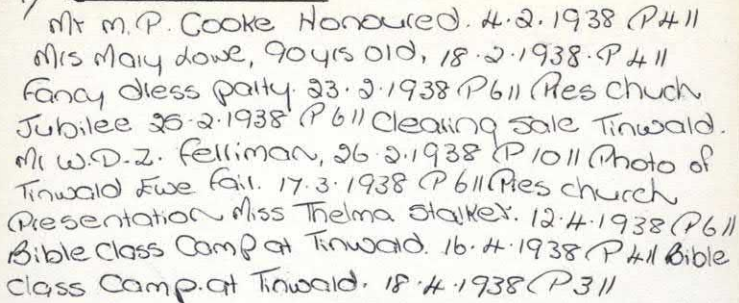 Mr M.P. Cooke Honoured. 4.2.1938 (P4//
Mrs Mary Lowe, 90yrs old, 18.2.1938. P4//
Fancy dress party. 23.2.1938 (P6// Pres Church
Jubilee 25.2.1938 (P6// Clearing Sale Tinwald.
Mr W.D.Z. Ferriman, 26.2.1938 (P10// Photo of
Tinwald Ewe Fair. 17.3.1938 (P6// Pres church
Presentation Miss Thelma Stalker. 12.4.1938 (P6//
Bible Class Camp at Tinwald. 16.4.1938 (P4// Bible
Class Camp. at Tinwald. 18.4.1938 (P3//